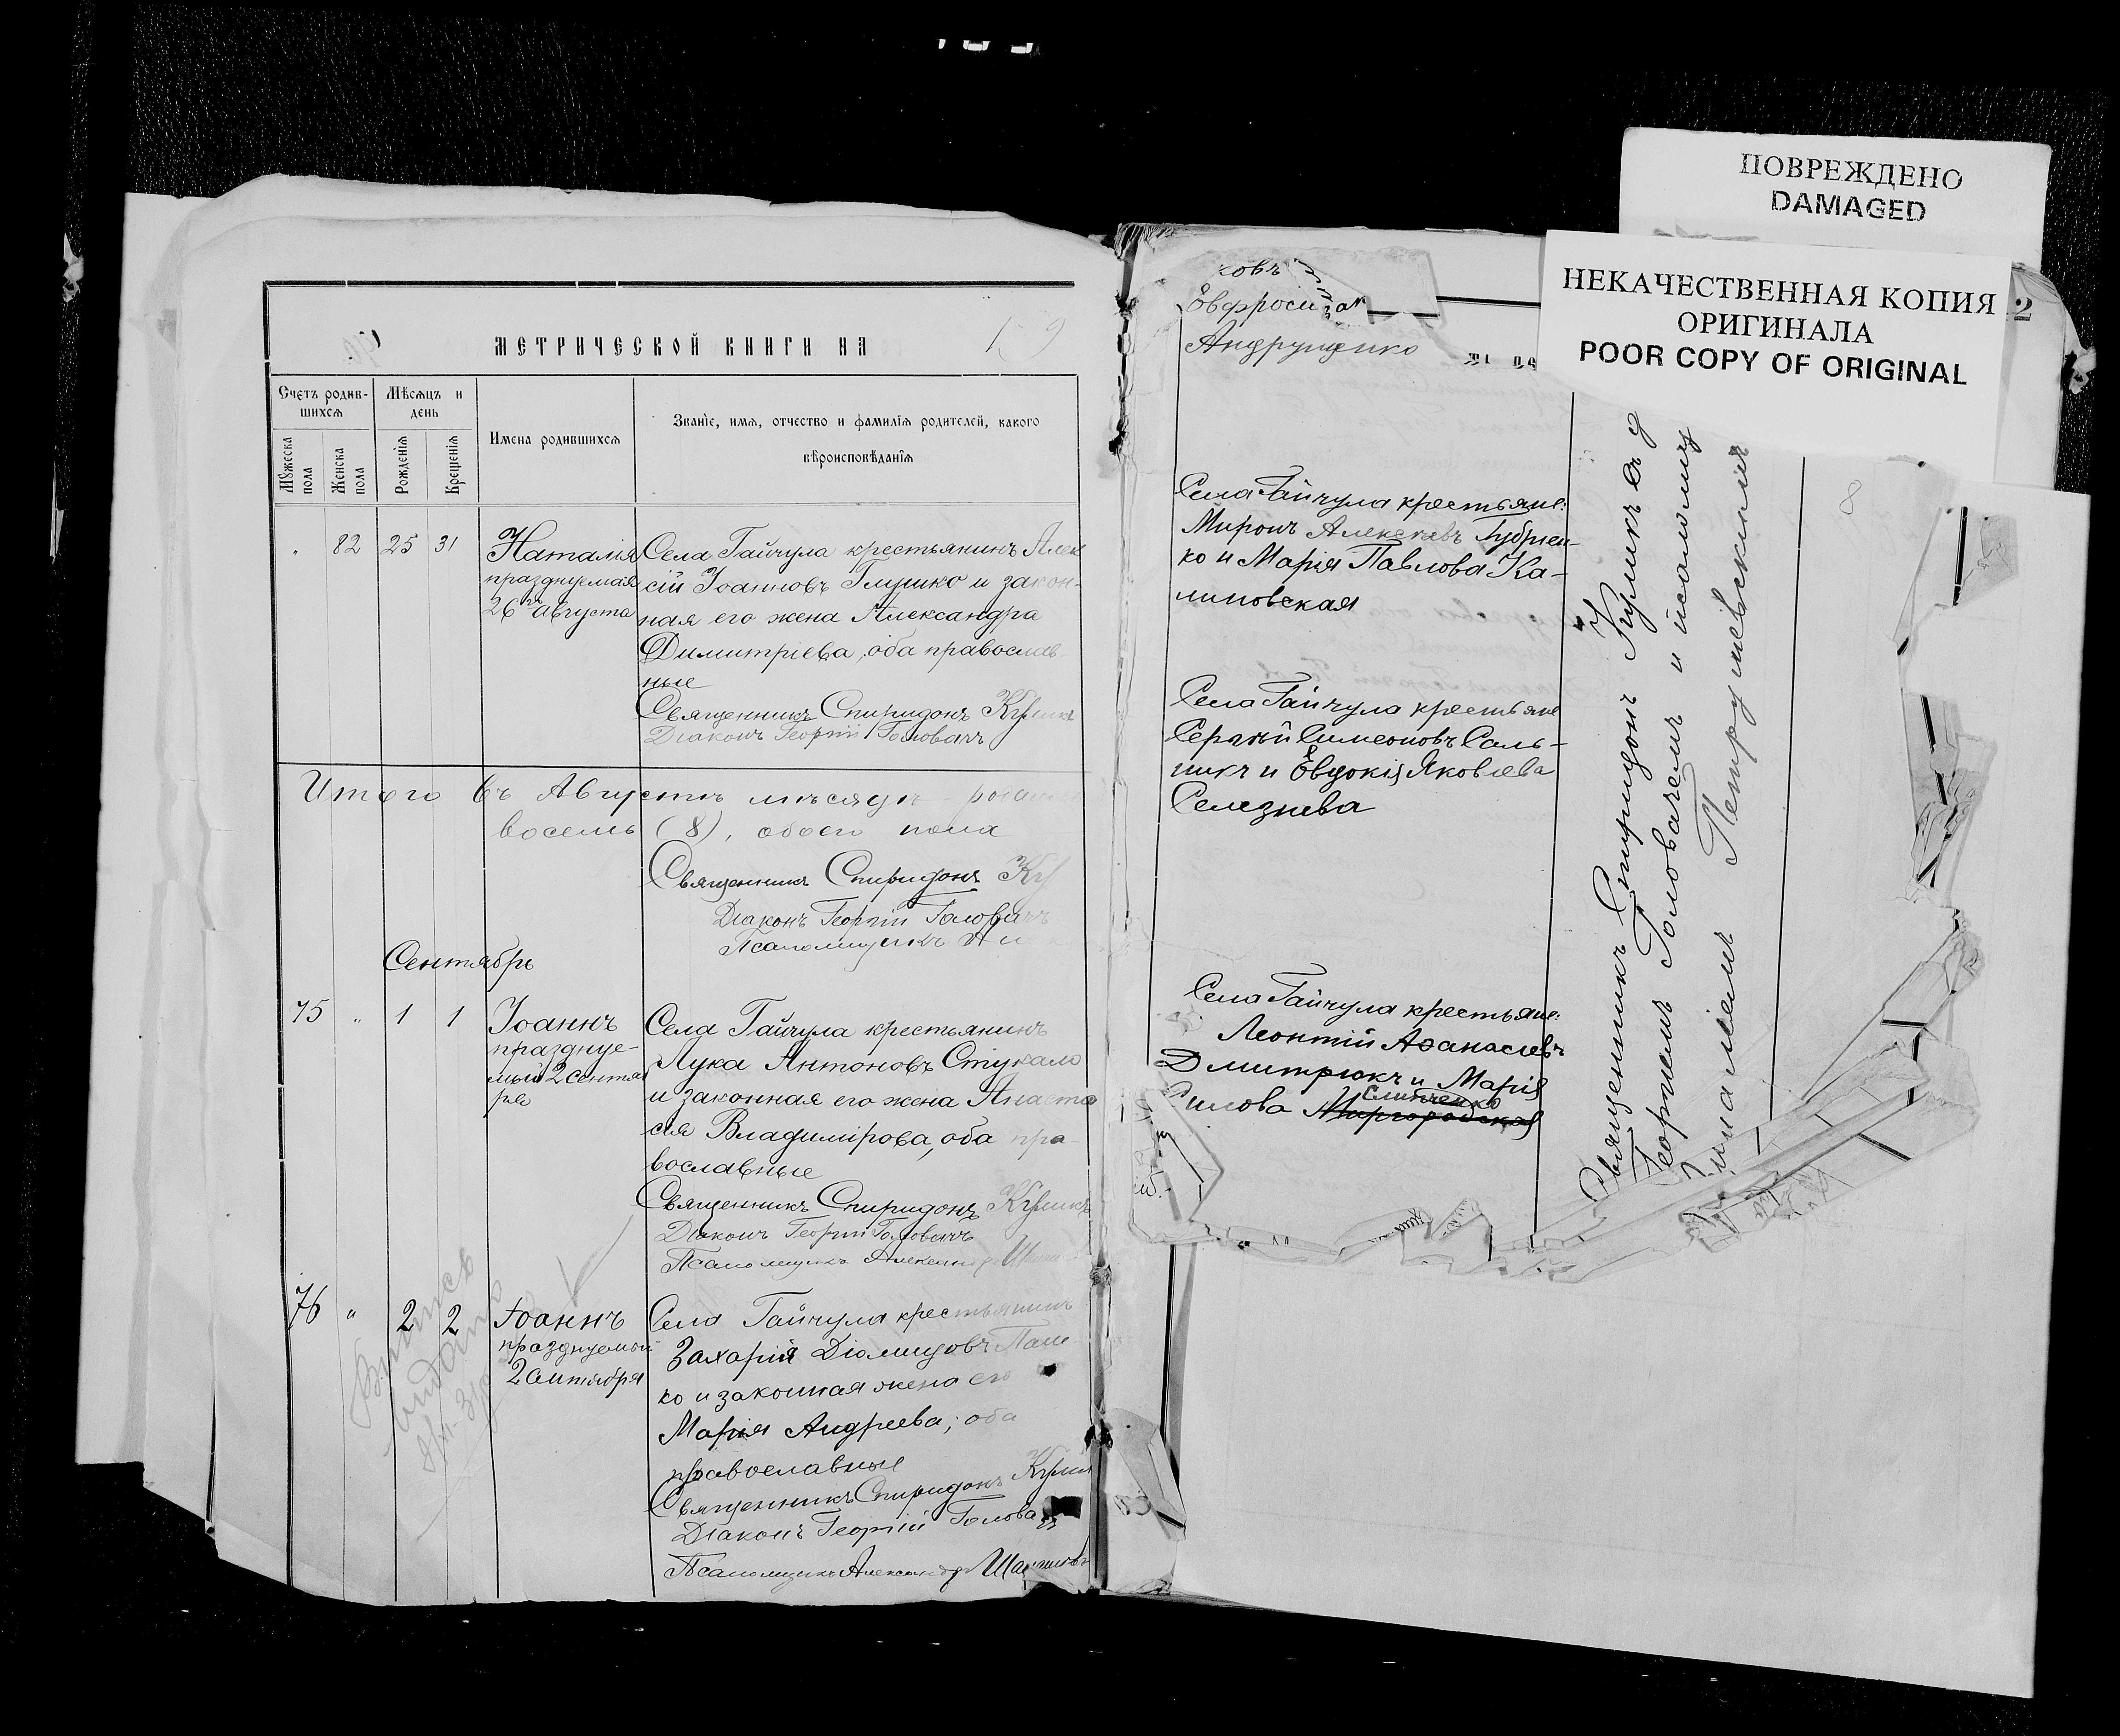 МЕТРИЧЕСКОЙ КНИГИ НА
Счетъ родив-
шихся
Мѣсяцъ и
день
Имена родившихся
Званіе, имя, отчество и фамилія родителей, какого
вѣроисповѣданія
Мужеска
пола
Женска
пола
Рожденія
Крещенія
82 25 31
Наталія
празднуемая
26го августа
Села Гайчула крестьянинъ Алек
сій Іоанновъ Глушко и закон-
ная его жена Александра
Димитріева, оба православ-
ные
Священникъ Спиридонъ Куликъ
Діаконъ Георгій Головачъ
Итого въ Августѣ мѣсяцѣ
восемь (8), обоего пола
Священникъ Спиридонъ Ку
Діаконъ Георгій Головачъ
Псаломщикъ
Сентябрь
75 " 1 1
Іоаннъ
праздуе-
мый 2 сентяб
ря
Села Гайчула крестьянинъ
Лука Антоновъ Стукало
и законная его жена Анаста
сія Владимірова, оба пра-
вославные
Священникъ Спиридонъ Куликъ
Діаконъ Георгій Головачъ
Псаломщикъ Александръ
76 " 2 2
Іоаннъ
празднуемой
2 сентября
Села Гайчула крестьянинъ
Захарій Діомидовъ
ко и законная жена его
Марія Андреева; оба
православные
Священникъ Спиридонъ Кули
Діаконъ Георгій Голова
Псаломщикъ Александръ
Выпись
выдана
ковъ
Евфроси
Андрущенко
Села Гайчула крестьяне:
Миронъ Алексѣевъ
ко и Марія Павлова Ка-
линовская
Села Гайчула крестьяне
Сергѣй Симеоновъ Саль-
никъ и Евдокія Яковлева
Селезнева
Села Гайчула крестьяне:
Леонтій Аѳанасіевъ
Дмитрюкъ и Марія
Слинченко
Силова Миргородская
Священникъ Спиридонъ Куликъ съ д
Георгіемъ Головачемъ и псаломщ
Петрушевскимъ
8
2
ПОВРЕЖДЕНО
DAMAGED
НЕКАЧЕСТВЕННАЯ КОПИЯ
ОРИГИНАЛА
POOR COPY OF ORIGINAL